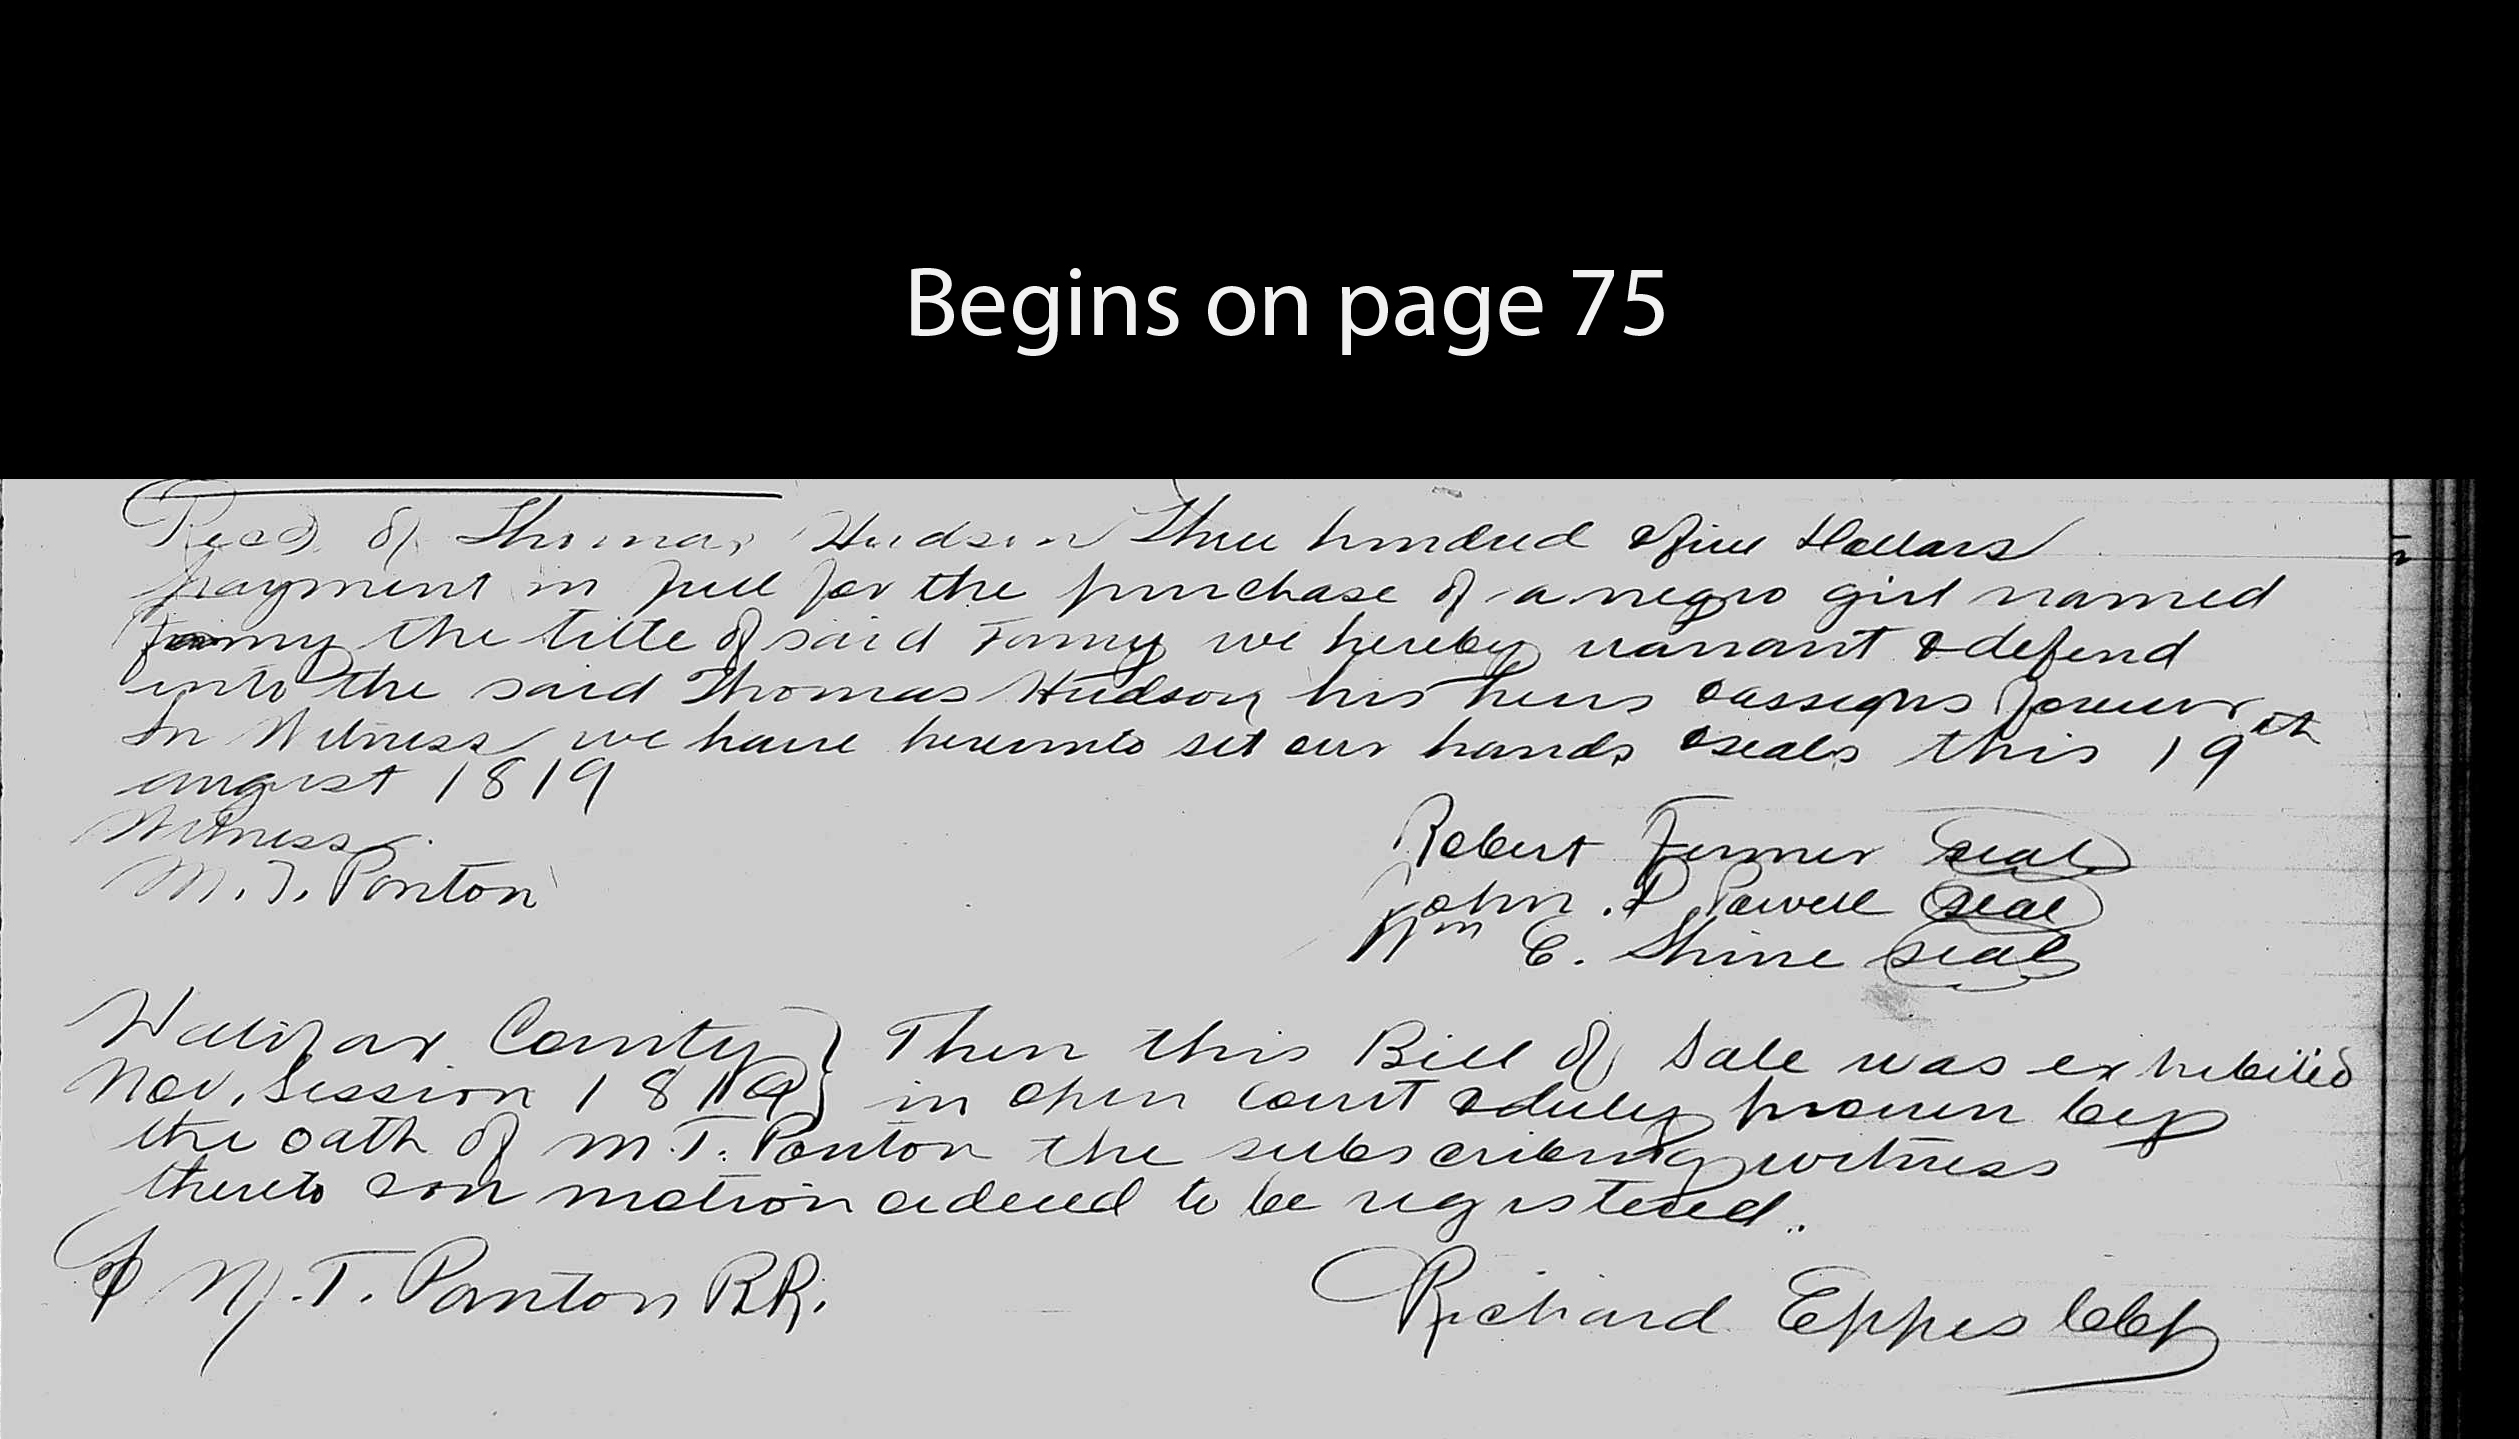 Begins on page 75
Recd. of Thomas Hudson Three hundred & five Dollars
payment in full for the purchase of a negro girl named
Fanny the title of said Fanny we hereby warrant & defend
unto the said Thomas Hudson his heirs & assigns forever
In Witness we have hereunto set our hands & seals this 19th
august 1819
Witness
M. T. Ponton
Robert Fenner seal
John . P Powell seal
Wm E. Shine seal
Halifax County } Then this Bill of Sale was exhibited
Nov. Session 1819 } in open court & duly proven by
the oath of M. T. Ponton the subscribing witness
thereto & on motion ordered to be registered.
M. T. Ponton P.R.
Richard Eppes